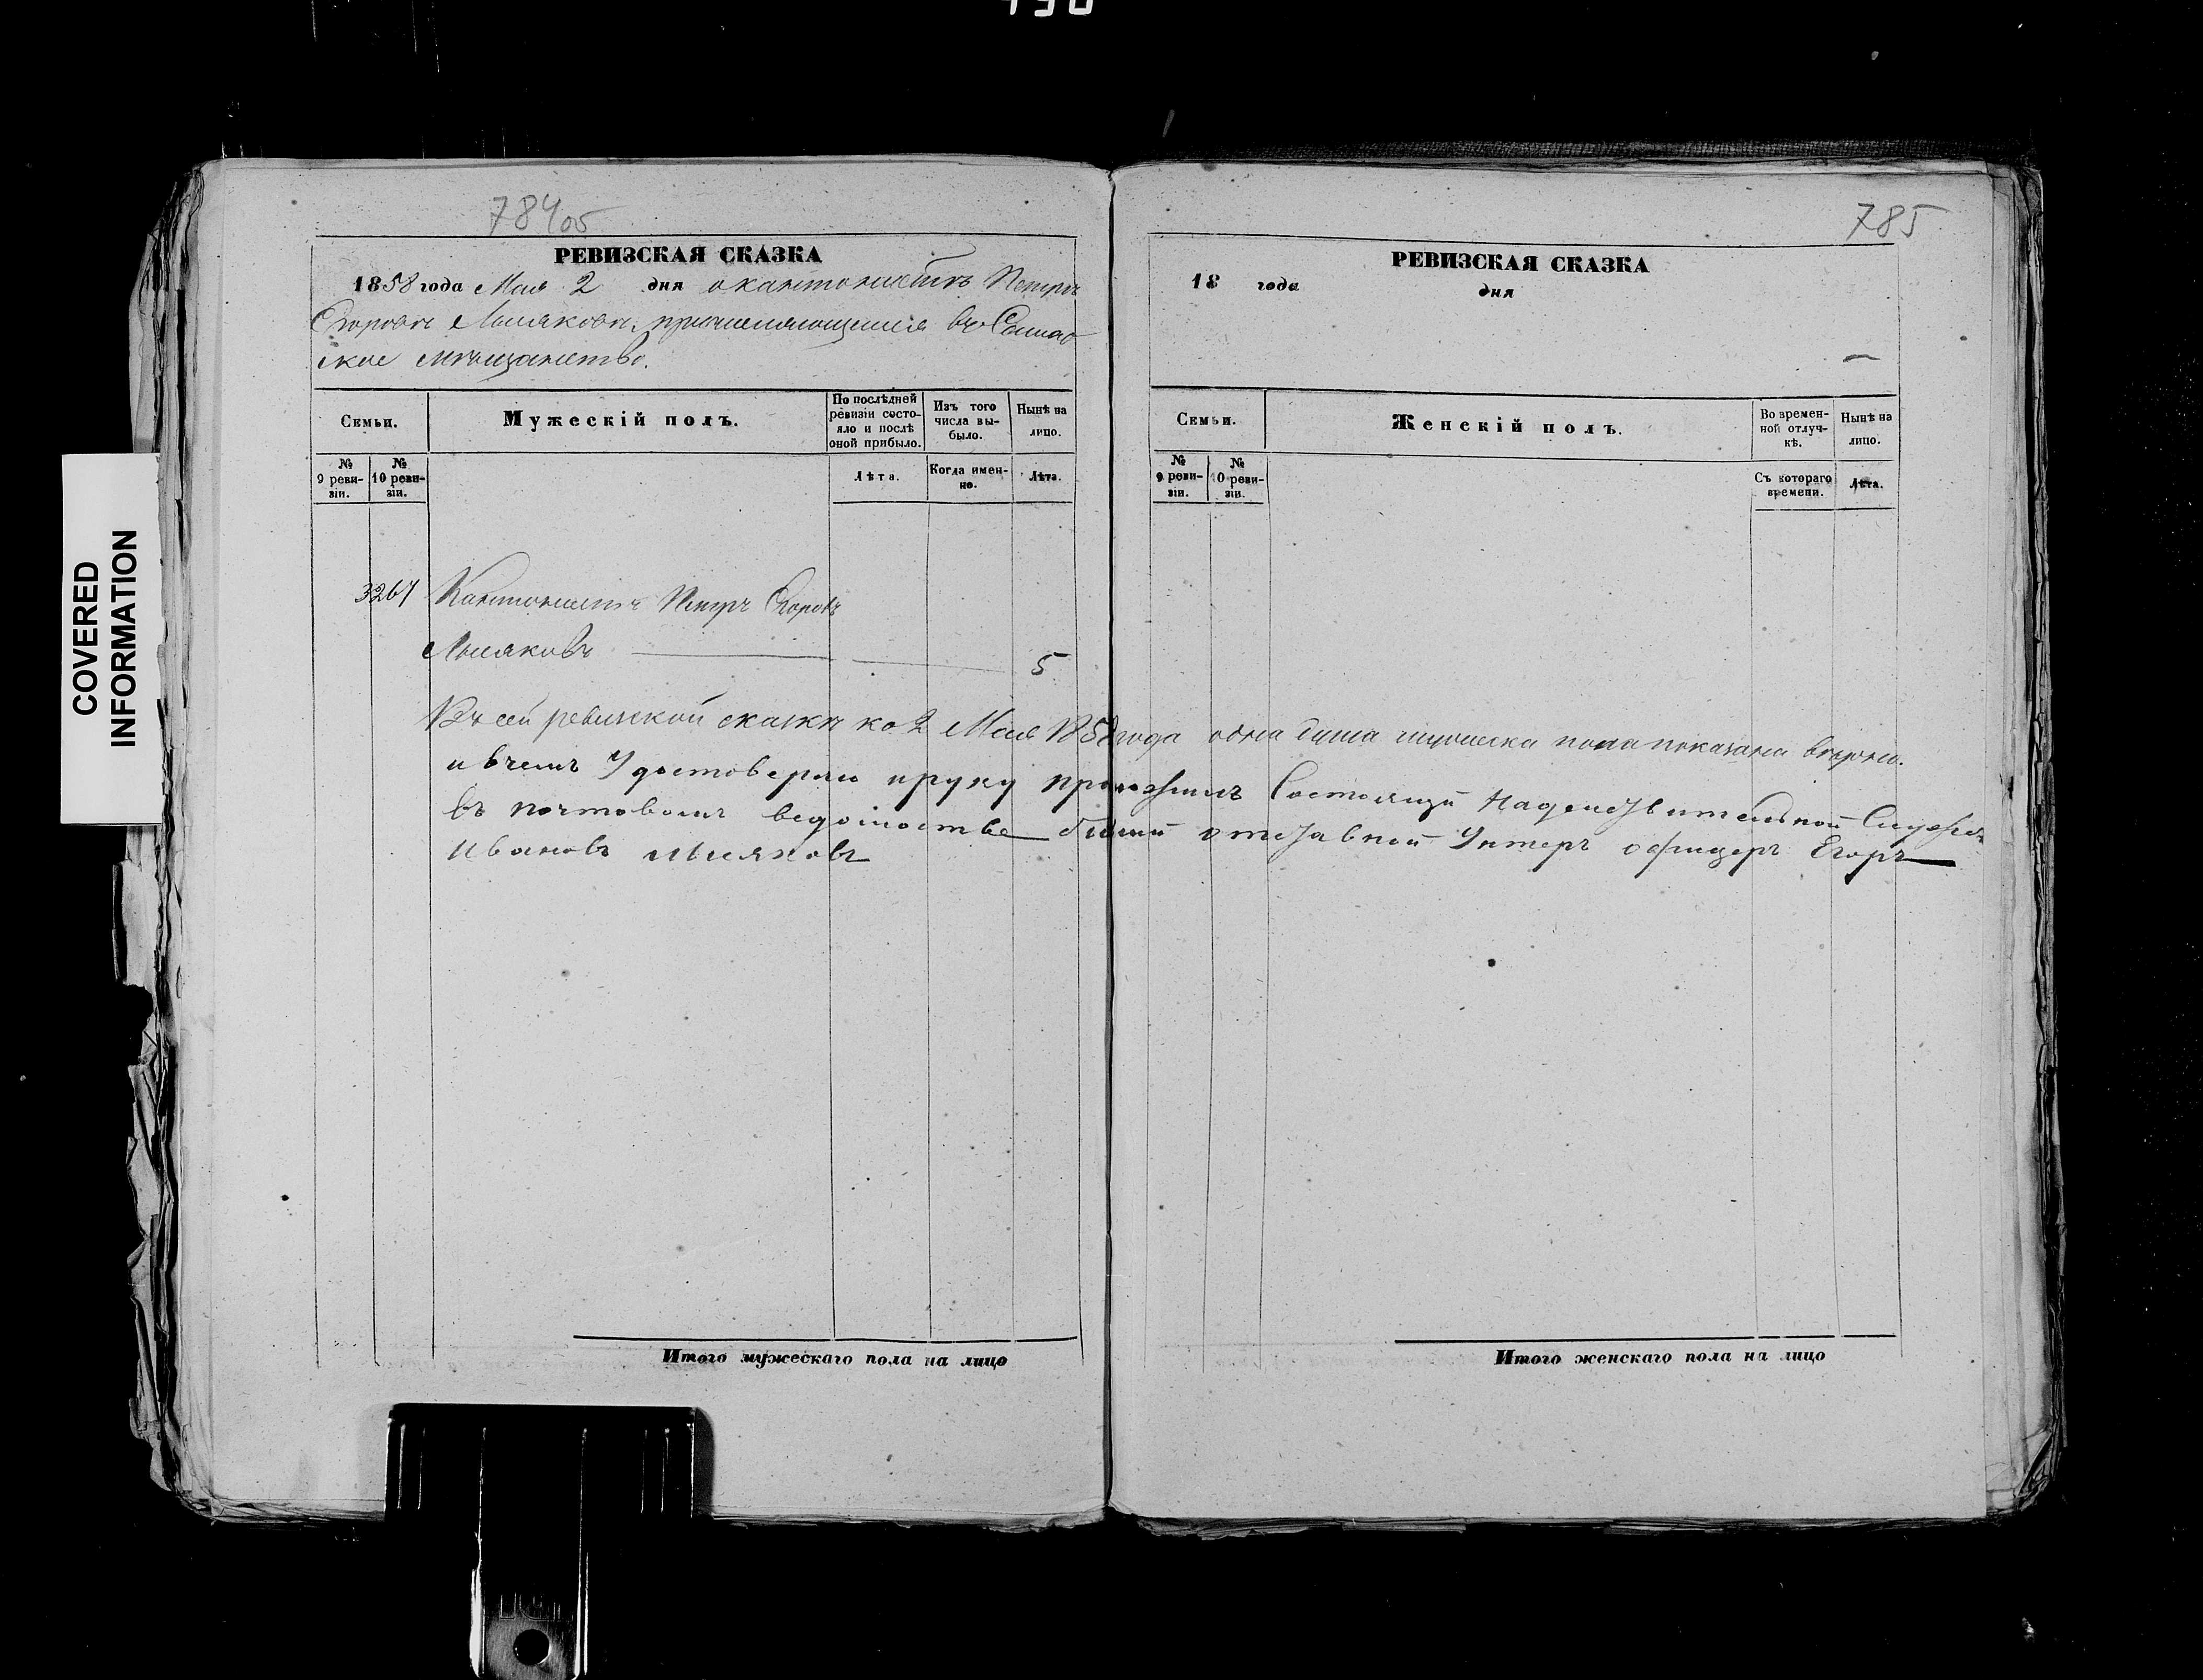 784об
785
РЕВИЗСКАЯ СКАЗКА
1858 года Мая 2 дня о кантонистѣ Петрѣ
Егоровѣ причисляющемся въ
ское мѣщанство.
Семьи.
Мужескій полъ.
По послѣдней ревизіи состояло и послѣ оной прибыло.
Изъ того числа выбыло.
Нынѣ на лицо.
№ 9 ревизіи.
№ 10 ревизіи.
Лѣта.
Когда именно.
Лѣта.
Кантонистъ Петръ Егоровъ
5
Въ сей ревизской сказкѣ ко 2 Мая 1858 года одна душа мужеска пола показана вѣрно.
и вчемъ Удостоверяю ируку приложилъ Состоящи Надействительной Службѣ
въ почтовомъ ведомостве бывши отставной Унтеръ офицеръ Егоръ
Ивановъ
Итого мужескаго пола на лицо
РЕВИЗСКАЯ СКАЗКА
18 года дня
Семьи.
Женскій полъ.
Во временной отлучкѣ.
Нынѣ на лицо.
№ 9 ревизіи.
№ 10 ревизіи.
Съ котораго времени.
Лѣта.
Итого женскаго пола на лицо
COVERED
INFORMATION